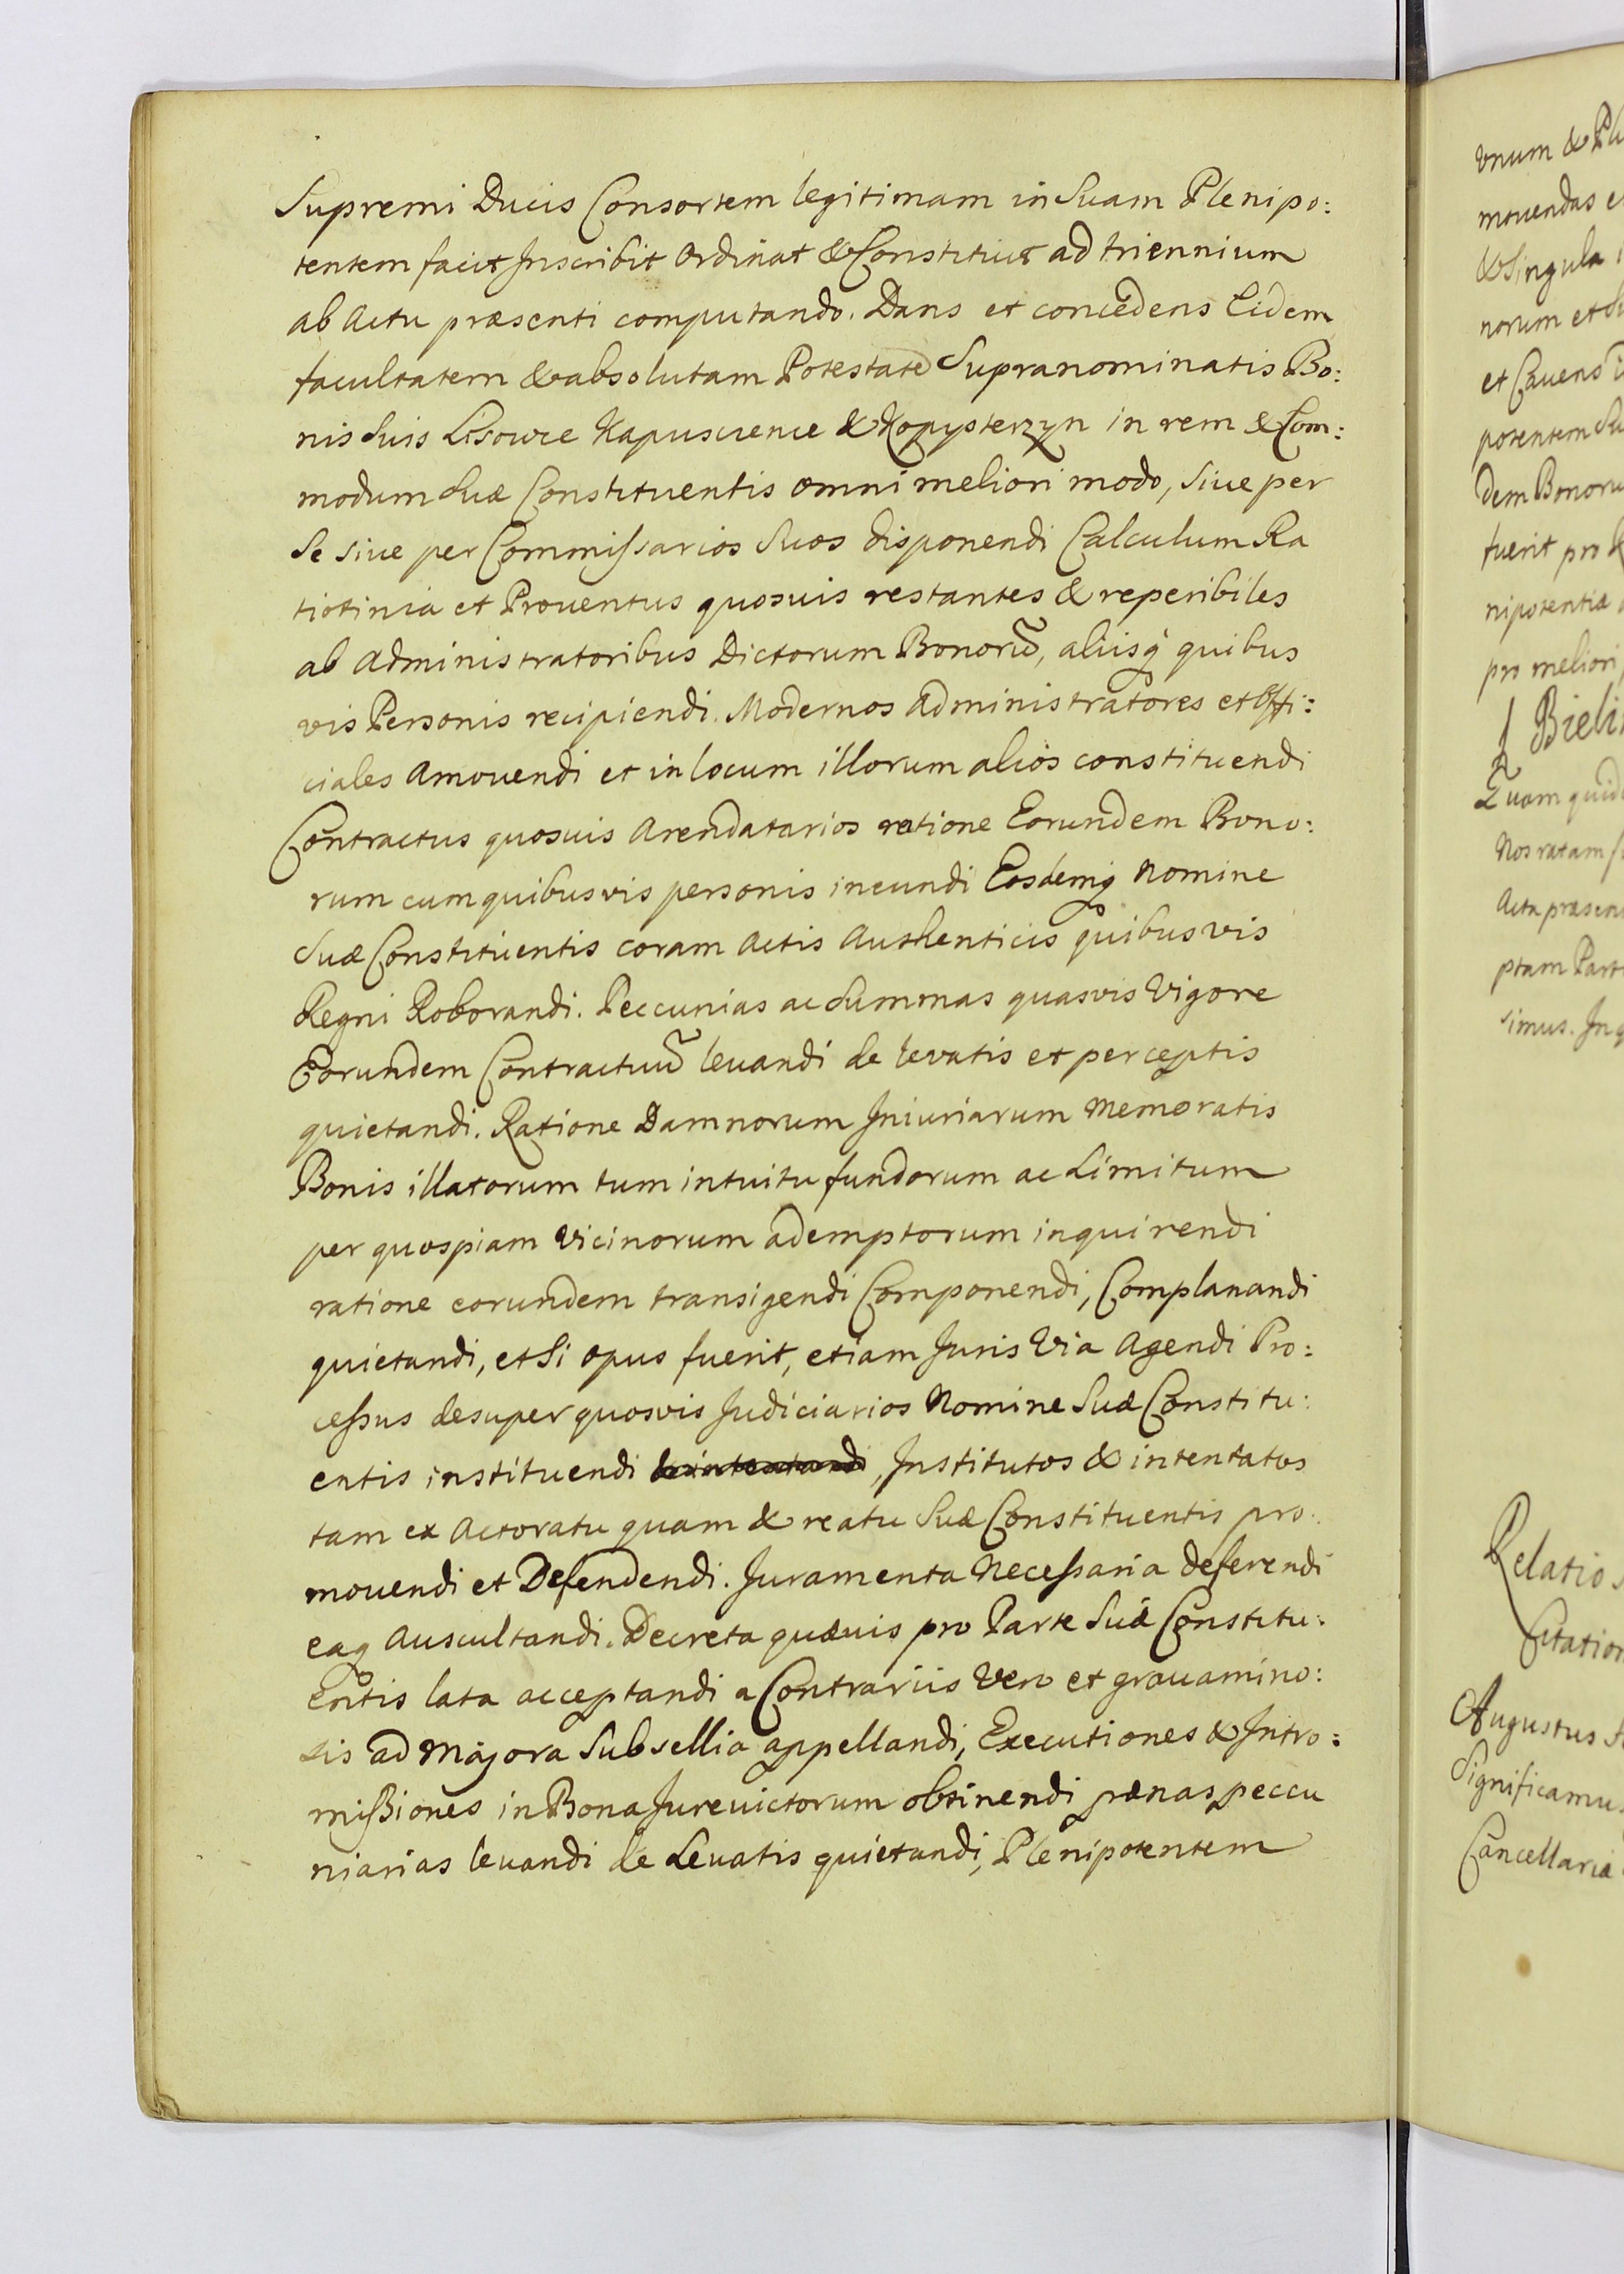 Supremi Ducis Consortem legitimam in Suam Plenipo:
tentem facit Inscribit Ordinat & Constituit ad triennium
ab Actu præsenti computando. Dans et concedens Eidem
facultatem & absolutam Potestatẽ Supranominatis Bo:
nis Suis Lisowce Kapuscience & Kopysterzyn in rem & Com:
modum Suæ Constituentis omni meliori modo, Siue per
Se siue per Commissarios Suos disponendi Calculum Ra
tiotinia et Prouentus quosuis restantes & reperibiles
ab Administratoribus Dictorum Bonorũ, aliisq́ quibus
vis Personis recipiendi. Modernos Administratores et Offi:
ciales Amouendi et in locum illorum alios constituendi
Contractus quosuis Arendatarios ratione Eorundem Bono:
rum cum quibusvis personis ineundi Eosdemq́ Nomine
Suæ Constituentis coram Actis Authenticis quibusvis
Regni Roborandi. Peccunias ac Summas quasvis Vigore
Eorundem Contractuũ leuandi de levatis et perceptis
quietandi. Ratione Damnorum Iniuriarum Memoratis
Bonis illatorum tum intuitu fundorum ac Limitum
per quospiam Vicinorum ademptorum inquirendi
ratione eorundem transigendi Componendi, Complanandi
quietandi, et Si opus fuerit, etiam Juris Via Agendi Pro:
cessus desuper quosvis Judiciarios Nomine Suæ Constitu:
entis instituendi, Institutos & intentatos
tam ex Actoratu quam & reatu Suæ Constituentis pro:
mouendi et Defendendi. Juramenta Necessaria deferendi
eaq́ Auscultandi. Decreta quæuis pro Parte Suæ Constitu:
entis lata acceptandi a Contrariis Vero et grauamino:
sis ad Majora Subsellia appellandi, Executiones & Intro:
missiones in Bona Jureuictorum obtinendi pænas peccu
niarias leuandi de Leuatis quietandi, Plenipotentem
vnum &
mouendas
& Singula
norum et
et Cauens
potentem
dem Bonoru
fuerit pro
nipotentiæ
pro meliori
Bieli
Quam quid
Nos ratam
Acta præsen
ptam Part
simus. Inq
Relatio
Citation
Augustus
Significamus
Cancellaria